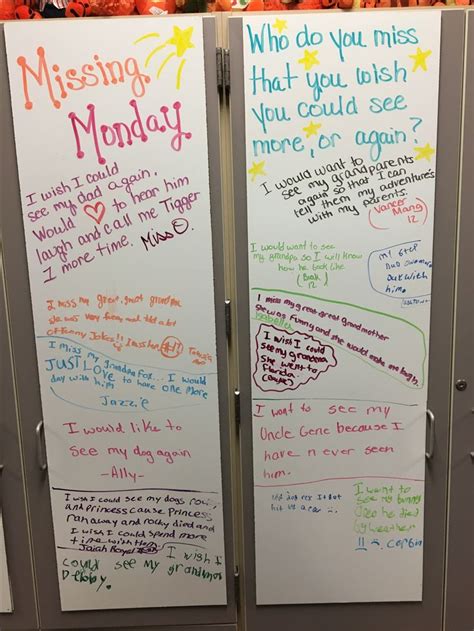 Missing
Monday
I wish I could
see my dad again,
Would to hear him
laugh and call me Tigger
1 more time. Miss O
I miss my great, great grandma
she was very funny and told a lot
of funny Jokes!!
I miss my Grandma Fox... I would
JUST Love to have one more
day with him
Jazzie
I would like to
see my dog again
-Ally-
I wish I could see my dogs rowdy
and Princess cause Princess
ran away and rocky died and
I wish I could spend more
time with them
Jaiah
I wish I
could see my grandmas
Debby.
Who do you miss
that you wish
you could see
more, or again?
I would want to
see my grandparents
again so that I can
tell them my adventure's
with my parents.
Mang
12
I would want to see
my grandpa so I will know
how he look like
12
with
him.
I miss my great great grandmother
she was funny and she would make me laugh.
Isabella
I wish I could
see my grandma
she went to
Florida
(cause)
I want to see my
Uncle Gene because I
have n ever seen
him.
my dog rex It got
hit by a car
I want to
see my bunny
he died
by weather
!! - corbin